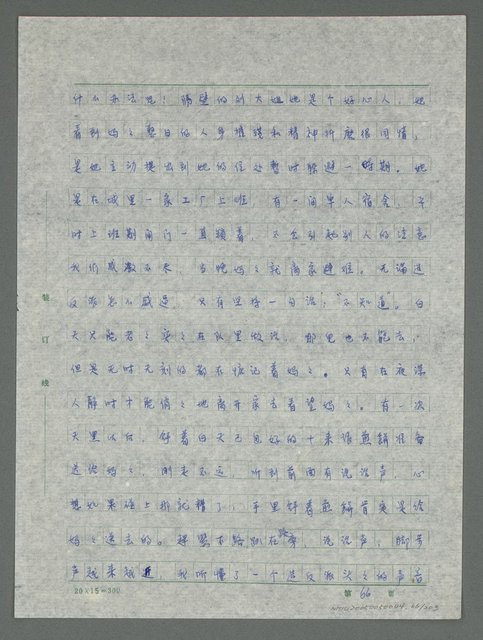 什么办法呢！隔壁的刘大姐她是个好心人，她
看到妈々整日的人身摧残和精神折磨很同情，
是她主动提出到她的住处暂时躲避一时期。她
是在城里一家工厂上班，有一间单人宿舍，平
时上班期间门一直锁着，不会引起别人的注意
我们感激不尽，当晚妈々就离家避难。无论造
反派怎么威逼，只有坚持一句话：“不知道”。白
天只能老々实々在队里做活，那里也不能去，
但是无时无刻的都在惦记着妈々。只有在夜深
人静时才能偷々地离开家去看望妈々。有一次
天黑以后，舒着白天已包好的十来张煎饼准备
送给妈々，刚走不远，听到前面有说话声，心
想如果碰上那就糟了，手里舒着煎饼肯定是给
妈々送去的。赶紧下路趴在路旁，说话声，脚步
声越来越近，我听懂了一个造反派头々的声音
装
订
线
20×15=300
第 66 页